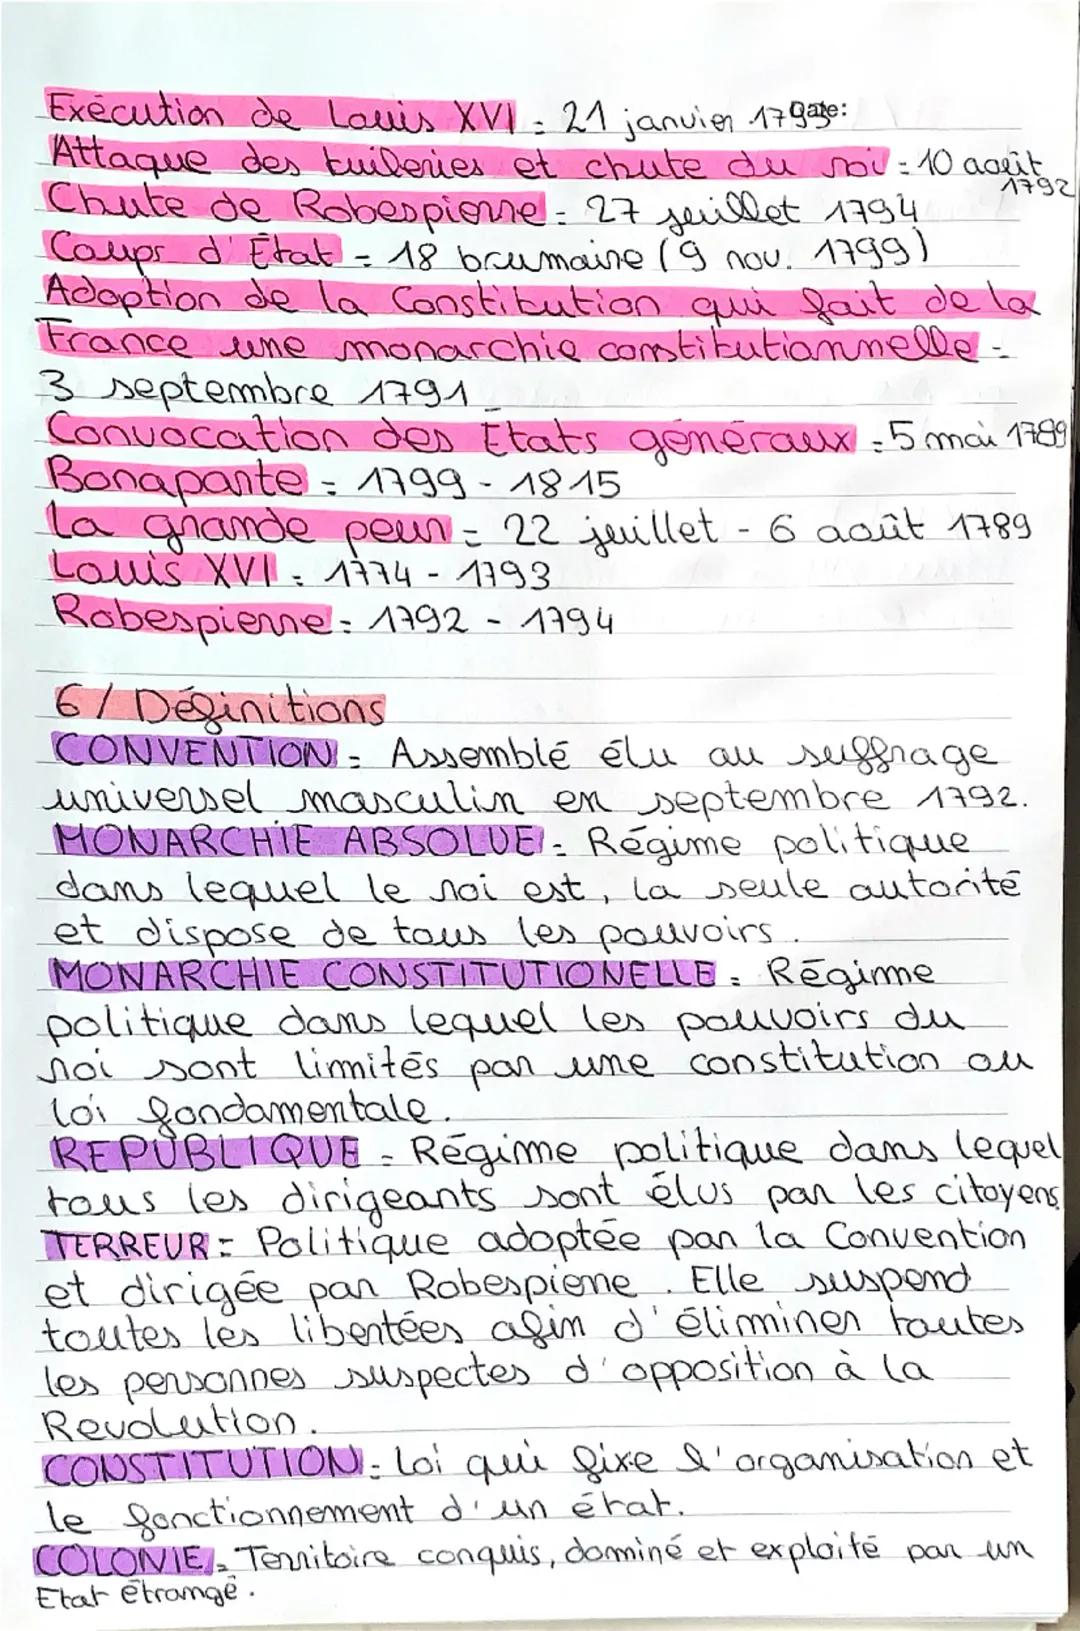 Exécution de Louis XVI = 21 janvier 1793
Date:
Attaque des tuileries et chute du roi = 10 août
1792
Chute de Robespierre = 27 juillet 1794
Coups d'État = 18 brumaire (9 nov. 1799)
Adoption de la Constitution qui fait de la
France une monarchie constitutionnelle =
3 septembre 1791
Convocation des Etats généraux = 5 mai 1789
Bonaparte = 1799 - 1815
La grande peur = 22 juillet - 6 août 1789
Louis XVI = 1774 - 1793
Robespierre = 1792 - 1794
6/ Définitions
CONVENTION = Assemblé élu au suffrage
universel masculin en septembre 1792.
MONARCHIE ABSOLUE = Régime politique
dans lequel le roi est, la seule autorité
et dispose de tous les pouvoirs.
MONARCHIE CONSTITUTIONELLE = Régime
politique dans lequel les pouvoirs du
roi sont limités par une constitution ou
loi fondamentale.
REPUBLIQUE = Régime politique dans lequel
tous les dirigeants sont élus par les citoyens
TERREUR = Politique adoptée par la Convention
et dirigée par Robespierre. Elle suspend
toutes les libertées afin d'éliminer toutes
les personnes suspectes d'opposition à la
Revolution.
CONSTITUTION = Loi qui fixe l'organisation et
le fonctionnement d'un état.
COLONIE = Territoire conquis, dominé et exploité par un
Etat étrangé.